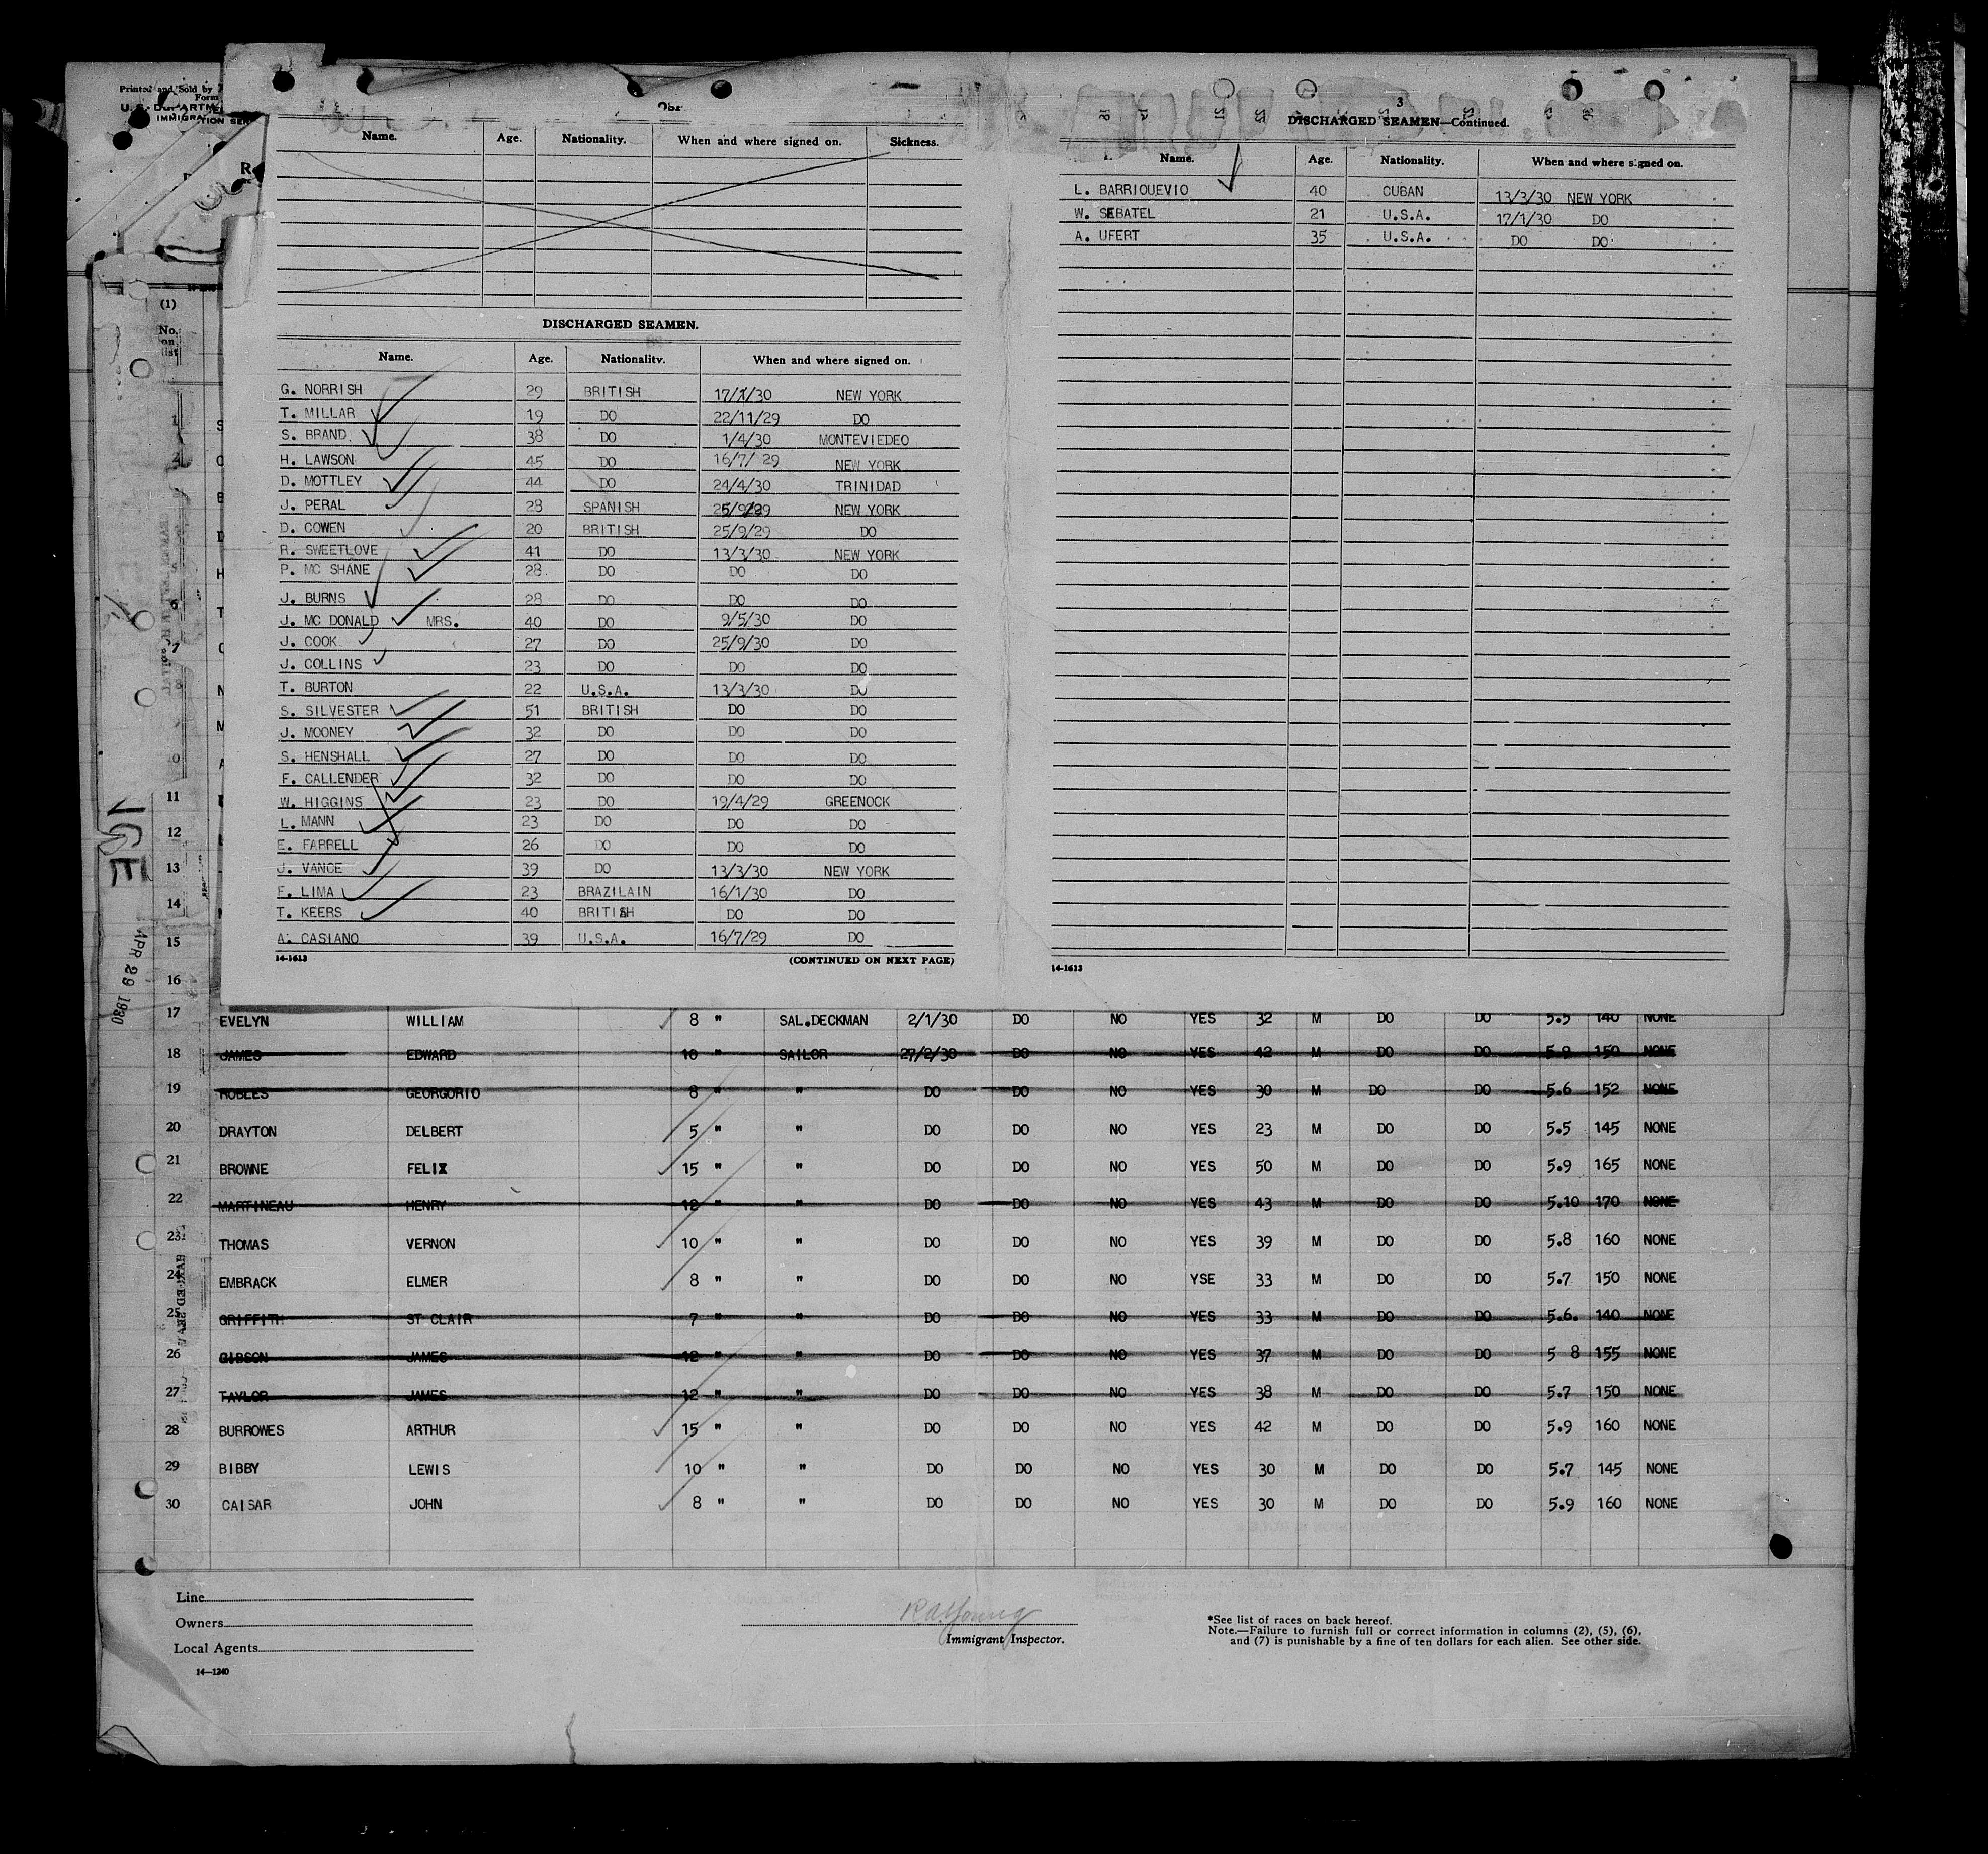 Printed and Sold by
Form
U. S. DEPARTME
IMMIGRA TION SER
R
(1)
No.
on
list
Name. Age. Nationality. When and where signed on. Sickness.
DISCHARGED SEAMEN.
Name. Age. Nationality. When and where signed on.
G. NORRISH 29 BRITISH 17/1/30 NEW YORK
T. MILLAR 19 DO 22/11/29 DO
S. BRAND. 38 DO 1/4/30 MONTEVIEDEO
H. LAWSON 45 DO 16/7/ 29 NEW YORK
D. MOTTLEY 44 DO 24/4/30 TRINIDAD
J. PERAL 28 SPANISH 25/9/29 NEW YORK
D. COWEN 20 BRITISH 25/9/29 DO
R. SWEETLOVE 41 DO 13/3/30 NEW YORK
P. MC SHANE 28 DO DO DO
J. BURNS 28 DO DO DO
J. MC DONALD MRS. 40 DO 9/5/30 DO
J. COOK 27 DO 25/9/30 DO
J. COLLINS 23 DO DO DO
T. BURTON 22 U.S.A. 13/3/30 DO
S. SILVESTER 51 BRITISH DO DO
J. MOONEY 32 DO DO DO
S. HENSHALL 27 DO DO DO
F. CALLENDER 32 DO DO DO
W. HIGGINS 23 DO 19/4/29 GREENOCK
L. MANN 23 DO DO DO
E. FARRELL 26 DO DO DO
J. VANCE 39 DO 13/3/30 NEW YORK
F. LIMA 23 BRAZILAIN 16/1/30 DO
T. KEERS 40 BRITISH DO DO
A. CASIANO 39 U.S.A. 16/7/29 DO
14-1613 (CONTINUED ON NEXT PAGE)
3
DISCHARGED SEAMEN—Continued.
Name. Age. Nationality. When and where signed on.
L. BARRIOUEVIO 40 CUBAN 13/3/30 NEW YORK
W. SEBATEL 21 U.S.A. 17/1/30 DO
A. UFERT 35 U.S.A. DO DO
14-1613
11
12
13
14
15
16
APR 29 1930
17 EVELYN WILLIAM 8 " SAL.DECKMAN 2/1/30 DO NO YES 32 M DO DO 5.5 140 NONE
18 JAMES EDWARD 10 " SAILOR 27/2/30 DO NO YES 42 M DO DO 5.9 150 NONE
19 ROBLES GEORGORIO 8 " " DO DO NO YES 30 M DO DO 5.6 152 NONE
20 DRAYTON DELBERT 5 " " DO DO NO YES 23 M DO DO 5.5 145 NONE
21 BROWNE FELIX 15 " " DO DO NO YES 50 M DO DO 5.9 165 NONE
22 MARTINEAU HENRY 12 " " DO DO NO YES 43 M DO DO 5.10 170 NONE
23 THOMAS VERNON 10 " " DO DO NO YES 39 M DO DO 5.8 160 NONE
24 EMBRACK ELMER 8 " " DO DO NO YSE 33 M DO DO 5.7 150 NONE
25 GRIFFITH ST CLAIR 7 " " DO DO NO YES 33 M DO DO 5.6. 140 NONE
26 GIBSON JAMES 12 " " DO DO NO YES 37 M DO DO 5 8 155 NONE
27 TAYLOR JAMES 12 " " DO DO NO YES 38 M DO DO 5.7 150 NONE
28 BURROWES ARTHUR 15 " " DO DO NO YES 42 M DO DO 5.9 160 NONE
29 BIBBY LEWIS 10 " " DO DO NO YES 30 M DO DO 5.7 145 NONE
30 CAISAR JOHN 8 " " DO DO NO YES 30 M DO DO 5.9 160 NONE
Line
Owners
Local Agents
14—1240
R A Young
Immigrant Inspector.
*See list of races on back hereof.
Note.—Failure to furnish full or correct information in columns (2), (5), (6),
and (7) is punishable by a fine of ten dollars for each alien. See other side.